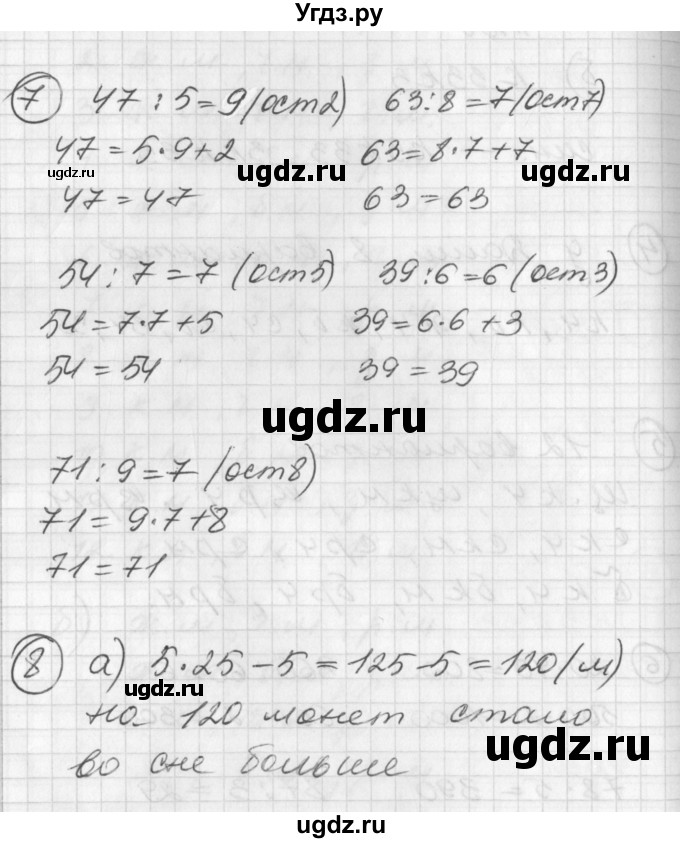 Угдз.ру
7 47 : 5 = 9 (ост 2) 63 : 8 = 7 (ост 7)
47 = 5 · 9 + 2 63 = 8 · 7 + 7
ugdz.ru ugdz.ru ugdz.ru
47 = 47 63 = 63
54 : 7 = 7 (ост 5) 39 : 6 = 6 (ост 3)
54 = 7 · 7 + 5 39 = 6 · 6 + 3
54 = 54 39 = 39
ugdz.ru
71 : 9 = 7 (ост 8)
71 = 9 · 7 + 8
71 = 71
8 а) 5 · 25 - 5 = 125 - 5 = 120 (м)
ugdz.ru
на 120 монет стало
ugdz.ru
во сне больше
ugdz.ru